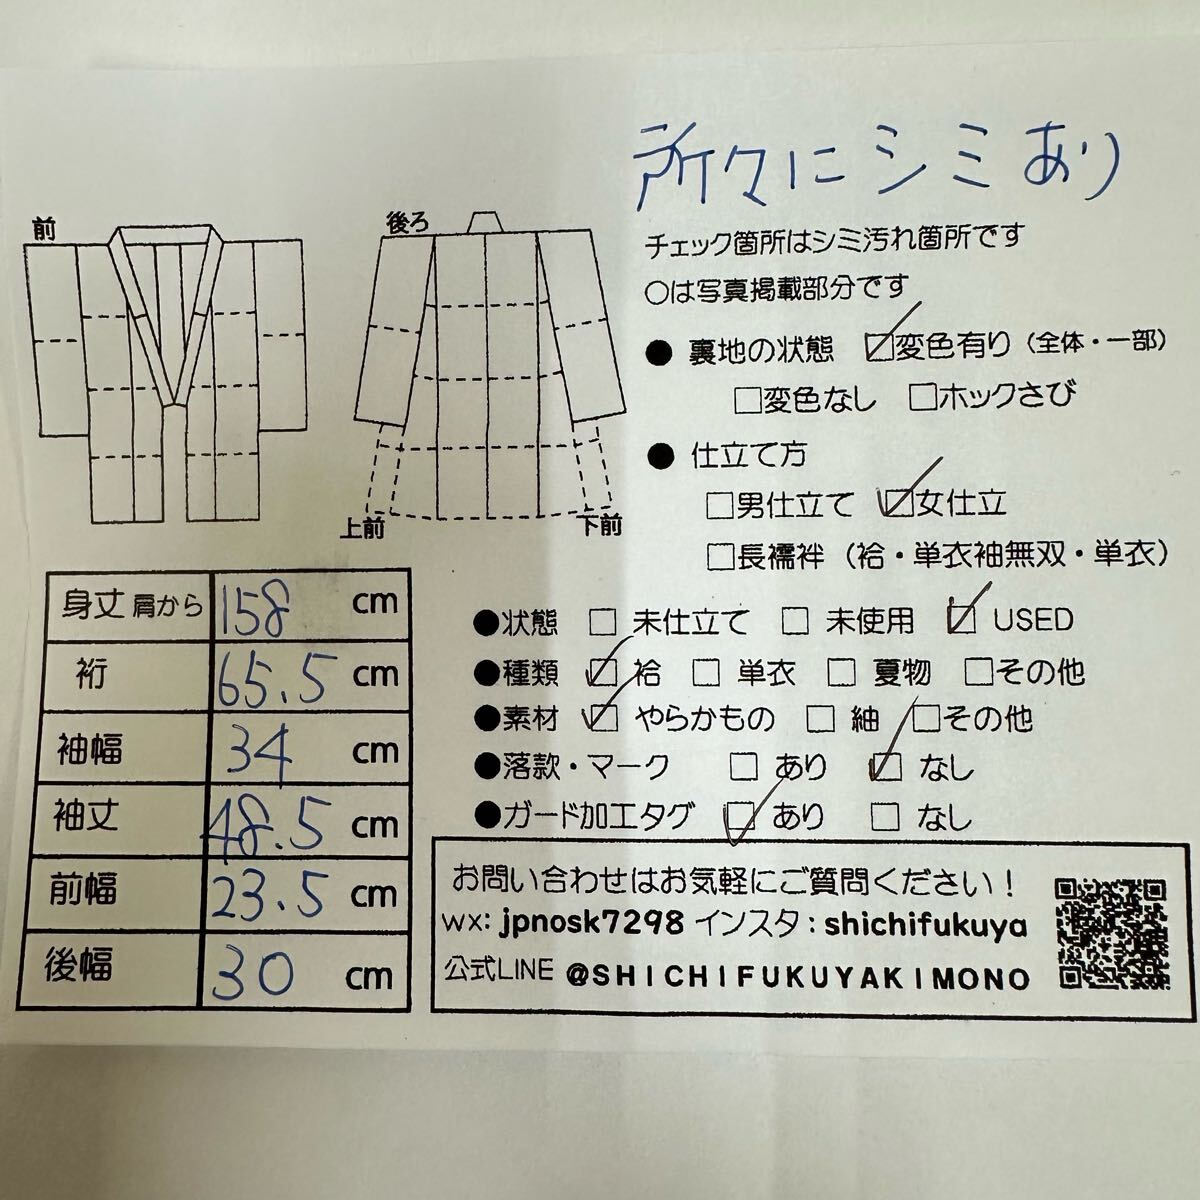 所々にシミあり
前
後ろ
チェック箇所はシミ汚れ箇所です
○は写真掲載部分です
● 裏地の状態 ☑変色有り（全体・一部）
□変色なし □ホックさび
● 仕立て方
□男仕立て ☑女仕立
□長襦袢（袷・単衣袖無双・単衣）
上前
下前
身丈 肩から 158 cm
裄 65.5 cm
袖幅 34 cm
袖丈 48.5 cm
前幅 23.5 cm
後幅 30 cm
●状態 □ 未仕立て □ 未使用 ☑ USED
●種類 ☑ 袷 □ 単衣 □ 夏物 □その他
●素材 ☑ やらかもの □ 紬 □その他
●落款・マーク □ あり ☑ なし
●ガード加工タグ ☑ あり □ なし
お問い合わせはお気軽にご質問ください！
wx: jpnosk7298 インスタ : shichifukuya
公式LINE @SHICHIFUKUYAKIMONO